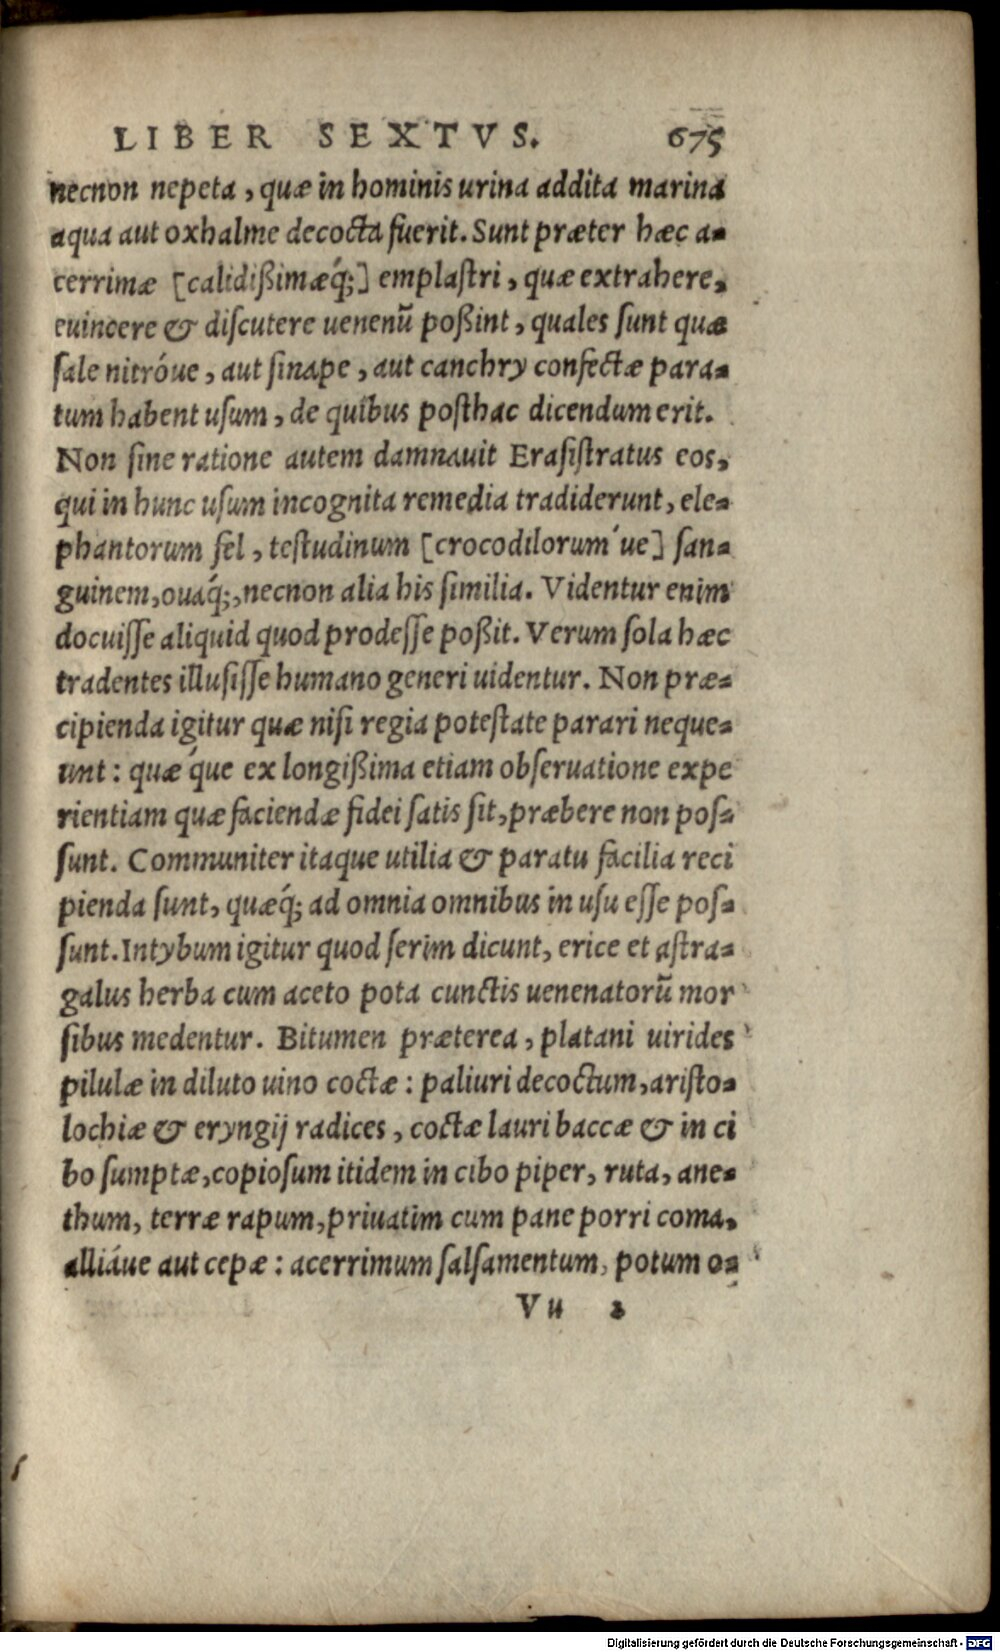 LIBER SEXTVS. 675
necnon nepeta, quæ in hominis urina addita marina
aqua aut oxhalme decocta fuerit. Sunt præter hæc a-
cerrimæ [calidißimæq́;] emplastri, quæ extrahere,
euincere & discutere uenenũ poßint, quales sunt quæ
sale nitróue, aut sinape, aut canchry confectæ para-
tum habent usum, de quibus posthac dicendum erit.
Non sine ratione autem damnauit Erasistratus eos,
qui in hunc usum incognita remedia tradiderunt, ele-
phantorum fel, testudinum [crocodilorum´ue] san-
guinem, ouáq;, necnon alia his similia. Videntur enim
docuisse aliquid quod prodesse poßit. Verum sola hæc
tradentes illusisse humano generi uidentur. Non præ-
cipienda igitur quæ nisi regia potestate parari neque-
unt: quæ´que ex longißima etiam obseruatione expe
rientiam quæ faciendæ fidei satis sit, præbere non pos-
sunt. Communiter itaque utilia & paratu facilia reci
pienda sunt, quæq́; ad omnia omnibus in usu esse pos-
sunt. Intybum igitur quod serim dicunt, erice et astra-
galus herba cum aceto pota cunctis uenenatorũ mor
sibus medentur. Bitumen præterea, platani uirides
pilulæ in diluto uino coctæ: paliuri decoctum, aristo-
lochiæ & eryngij radices, coctæ lauri baccæ & in ci
bo sumptæ, copiosum itidem in cibo piper, ruta, ane-
thum, terræ rapum, priuatim cum pane porri coma,
alliáue aut cepæ: acerrimum salsamentum, potum o-
Vu 2
Digitalisierung gefördert durch die Deutsche Forschungsgemeinschaft - DFG